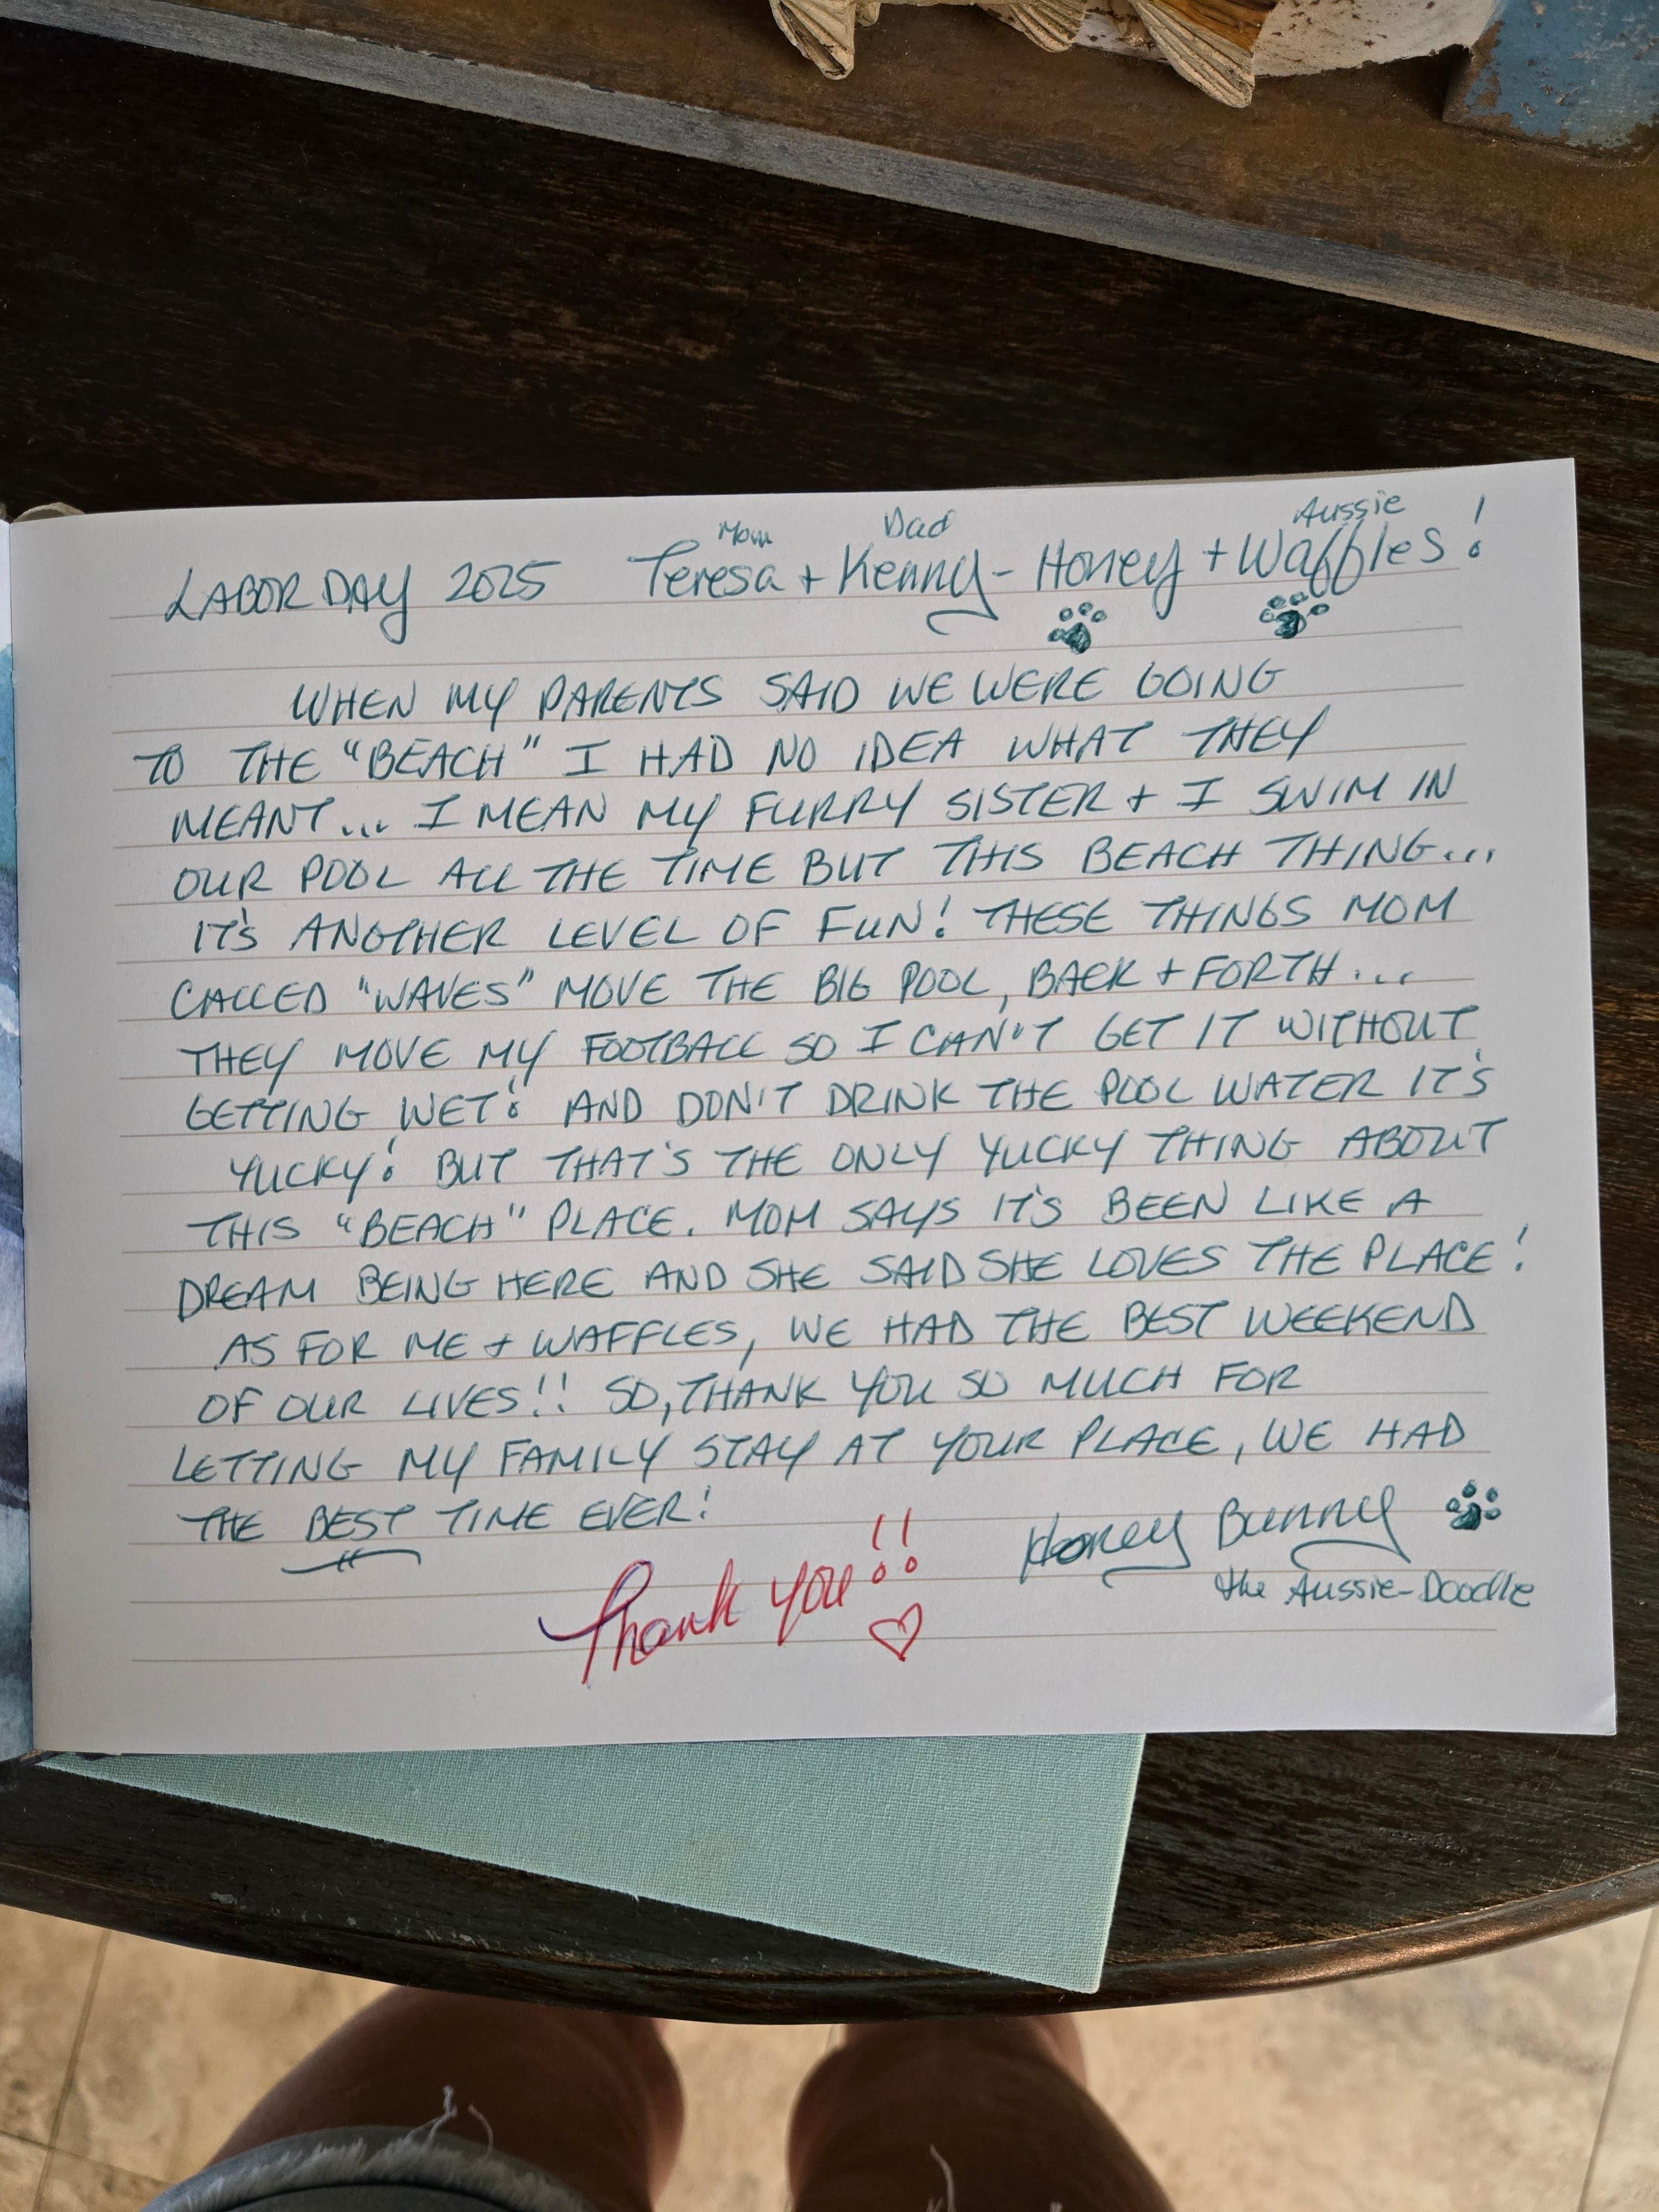 Mom Dad Aussie
LABOR DAY 2025 Teresa + Kenny - Honey + Waffles!
WHEN MY PARENTS SAID WE WERE GOING
TO THE "BEACH" I HAD NO IDEA WHAT THEY
MEANT... I MEAN MY FURRY SISTER + I SWIM IN
OUR POOL ALL THE TIME BUT THIS BEACH THING...
IT'S ANOTHER LEVEL OF FUN! THESE THINGS MOM
CALLED "WAVES" MOVE THE BIG POOL, BACK + FORTH...
THEY MOVE MY FOOTBALL SO I CAN'T GET IT WITHOUT
GETTING WET! AND DON'T DRINK THE POOL WATER IT'S
YUCKY! BUT THAT'S THE ONLY YUCKY THING ABOUT
THIS "BEACH" PLACE. MOM SAYS IT'S BEEN LIKE A
DREAM BEING HERE AND SHE SAID SHE LOVES THE PLACE!
AS FOR ME + WAFFLES, WE HAD THE BEST WEEKEND
OF OUR LIVES!! SO, THANK YOU SO MUCH FOR
LETTING MY FAMILY STAY AT YOUR PLACE, WE HAD
THE BEST TIME EVER!
Honey Bunny
the Aussie-Doodle
Thank you!!